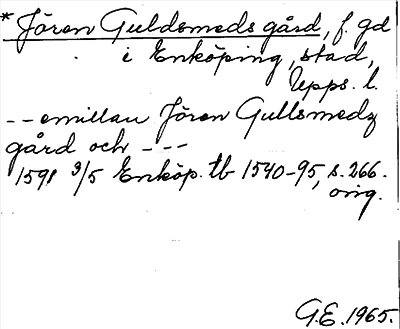 * Jören Guldsmeds gård, f. gd
i Enköping, stad,
Upps. l.
-- emillan Jören Gullsmedz
gård och ---
1591 3/5 Enköp. tb 1540-95, s. 266.
orig.
G.E. 1965.